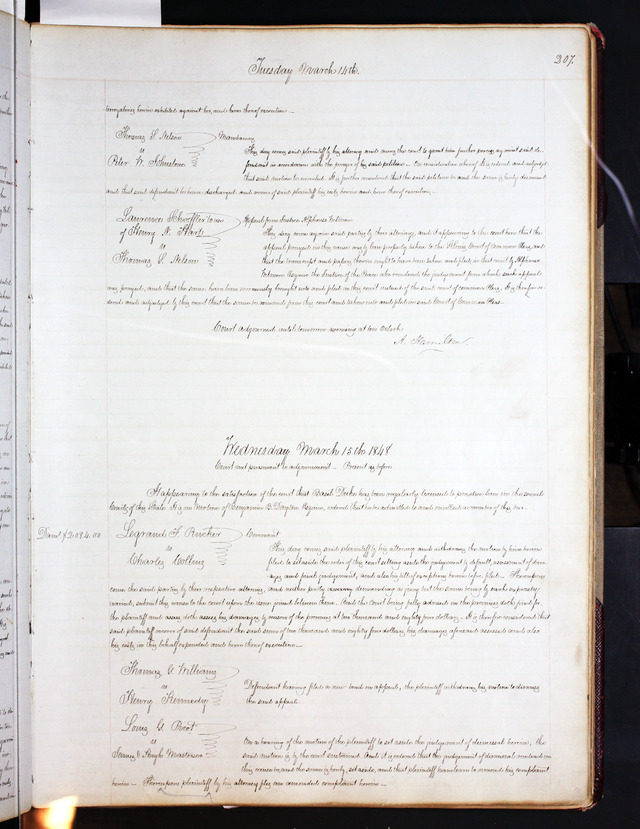 207.
Tuesday March 14th.
exhibited against her, and have thereof execution
Thomas S. Nelson
vs
Peter W. Johnston
Mandamus
This day comes said plaintiff by his attorney and moves the court to grant him further process against said de-
fendant in accordance with the prayer of his said petition. On consideration whereof it is ordered and adjudged
that said motion be overruled. It is further considered that said petition be and the same is hereby dismissed
and that said defendant be hence discharged and recover of said plaintiff his costs herein and have thereof execution.
Lawrence Shoffler to use
of Henry N. Hart
vs
Thomas S. Nelson
Appeal from Justice Alphonso Wetmore
This day come again said parties by their attorneys, and it appearing to the court here that the
appeal prayed in this cause may have properly taken to the Court of Common Pleas, and
that the transcript and papers therein ought to have been taken and filed in that court by Alphonso
Wetmore Esquire the Justice of the Peace who rendered the judgment from which such appeal
was prayed, and that the same have been brought into and filed in this court instead of the said court of common Pleas. It is therefore or-
dered and adjudged by this court that the same be removed from this court and taken into and filed in said Court of Common Pleas.
Court adjourned until tomorrow morning at ten oclock
A. Hamilton.
Wednesday March 15th 1848
Court met pursuant to adjournment. Present as before
It appearing to the satisfaction of the court that Basil Duke has been regularly licensed to practice law in the several
Courts of this State. It is on motion of Benjamin B. Dayton Esquire, ordered that he be admitted to and enrolled a member of this bar.
Dam's $2084.00
Legrand F. Rucker
vs
Charles Collins
Covenant
This day comes said plaintiff by his attorney and withdraws the motion by him herein
filed to set aside the order of this court setting aside the judgment by default, assessment of dam-
ages and final judgment, and also his bill of exceptions herein before filed. Whereupon
come the said parties by their respective attorneys, and neither party demanding a jury but the same being by each expressly
waived, submit this cause to the court upon the issue joined between them. And the court being fully advised in the premises doth find for
the plaintiff and doth assess his damages by reason of the premises at two thousand and eighty four dollars. It is therefore considered that
said plaintiff recover of said defendant the said sum of two thousand and eighty four dollars, his damages aforesaid assessed and also
his costs in this behalf expended and have thereof execution
Thomas C. Williams
vs
Henry Kennedy
Defendant having filed a new bond on appeal, the plaintiff withdraws his motion to dismiss
the said appeal.
Louis G. Picot
vs
James & Hugh Masterson
On a hearing of the motion of the plaintiff to set aside the judgement of dismissal herein, the
said motion is by the court sustained. And it is ordered that the judgement of dismissal rendered in
this cause be, and the same is hereby, set aside, and that plaintiff have leave to amend his complaint
herein. Thereupon plaintiff by his attorney files an amended complaint herein